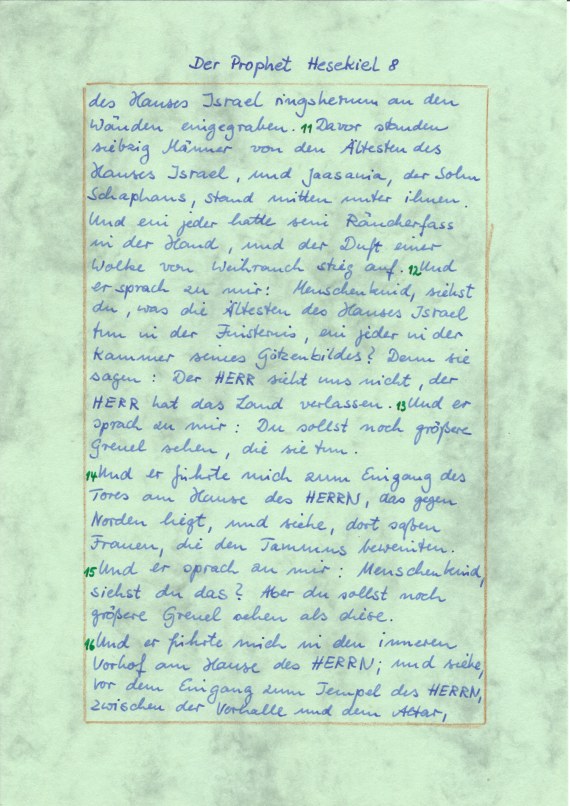 Der Prophet Hesekiel 8
des Hauses Israel ringsherum an den
Wänden eingegraben. 11 Davor standen
siebzig Männer von den Ältesten des
Hauses Israel, und Jaasania, der Sohn
Schaphans, stand mitten unter ihnen.
Und ein jeder hatte sein Räucherfass
in der Hand, und der Duft einer
Wolke von Weihrauch stieg auf. 12 Und
er sprach zu mir: Menschenkind, siehst
du, was die Ältesten des Hauses Israel
tun in der Finsternis, ein jeder in der
Kammer seines Götzenbildes? Denn sie
sagen: Der HERR sieht uns nicht, der
HERR hat das Land verlassen. 13 Und er
sprach zu mir: Du sollst noch größere
Greuel sehen, die sie tun.
14 Und er führte mich zum Eingang des
Tores am Hause des HERRN, das gegen
Norden liegt, und siehe, dort saßen
Frauen, die den Tammus beweinten.
15 Und er sprach zu mir: Menschenkind,
siehst du das? Aber du sollst noch
größere Greuel sehen als diese.
16 Und er führte mich in den inneren
Vorhof am Hause des HERRN; und siehe,
vor dem Eingang zum Tempel des HERRN,
zwischen der Vorhalle und dem Altar,